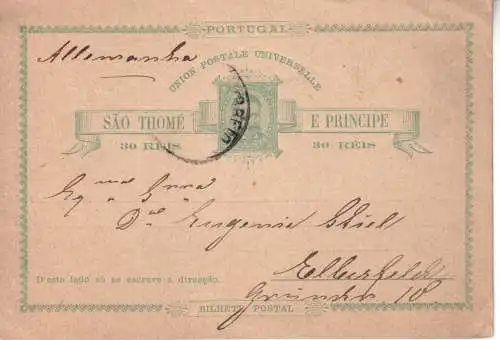 PORTUGAL
Allemanha
UNION POSTALE UNIVERSELLE
SÃO THOMÉ E PRINCIPE
30 RÉIS 30 RÉIS
Exma Snra
Da Eugenia Stiel
Elberfeld
D'este lado só se escreve a direcção.
BILHETE POSTAL